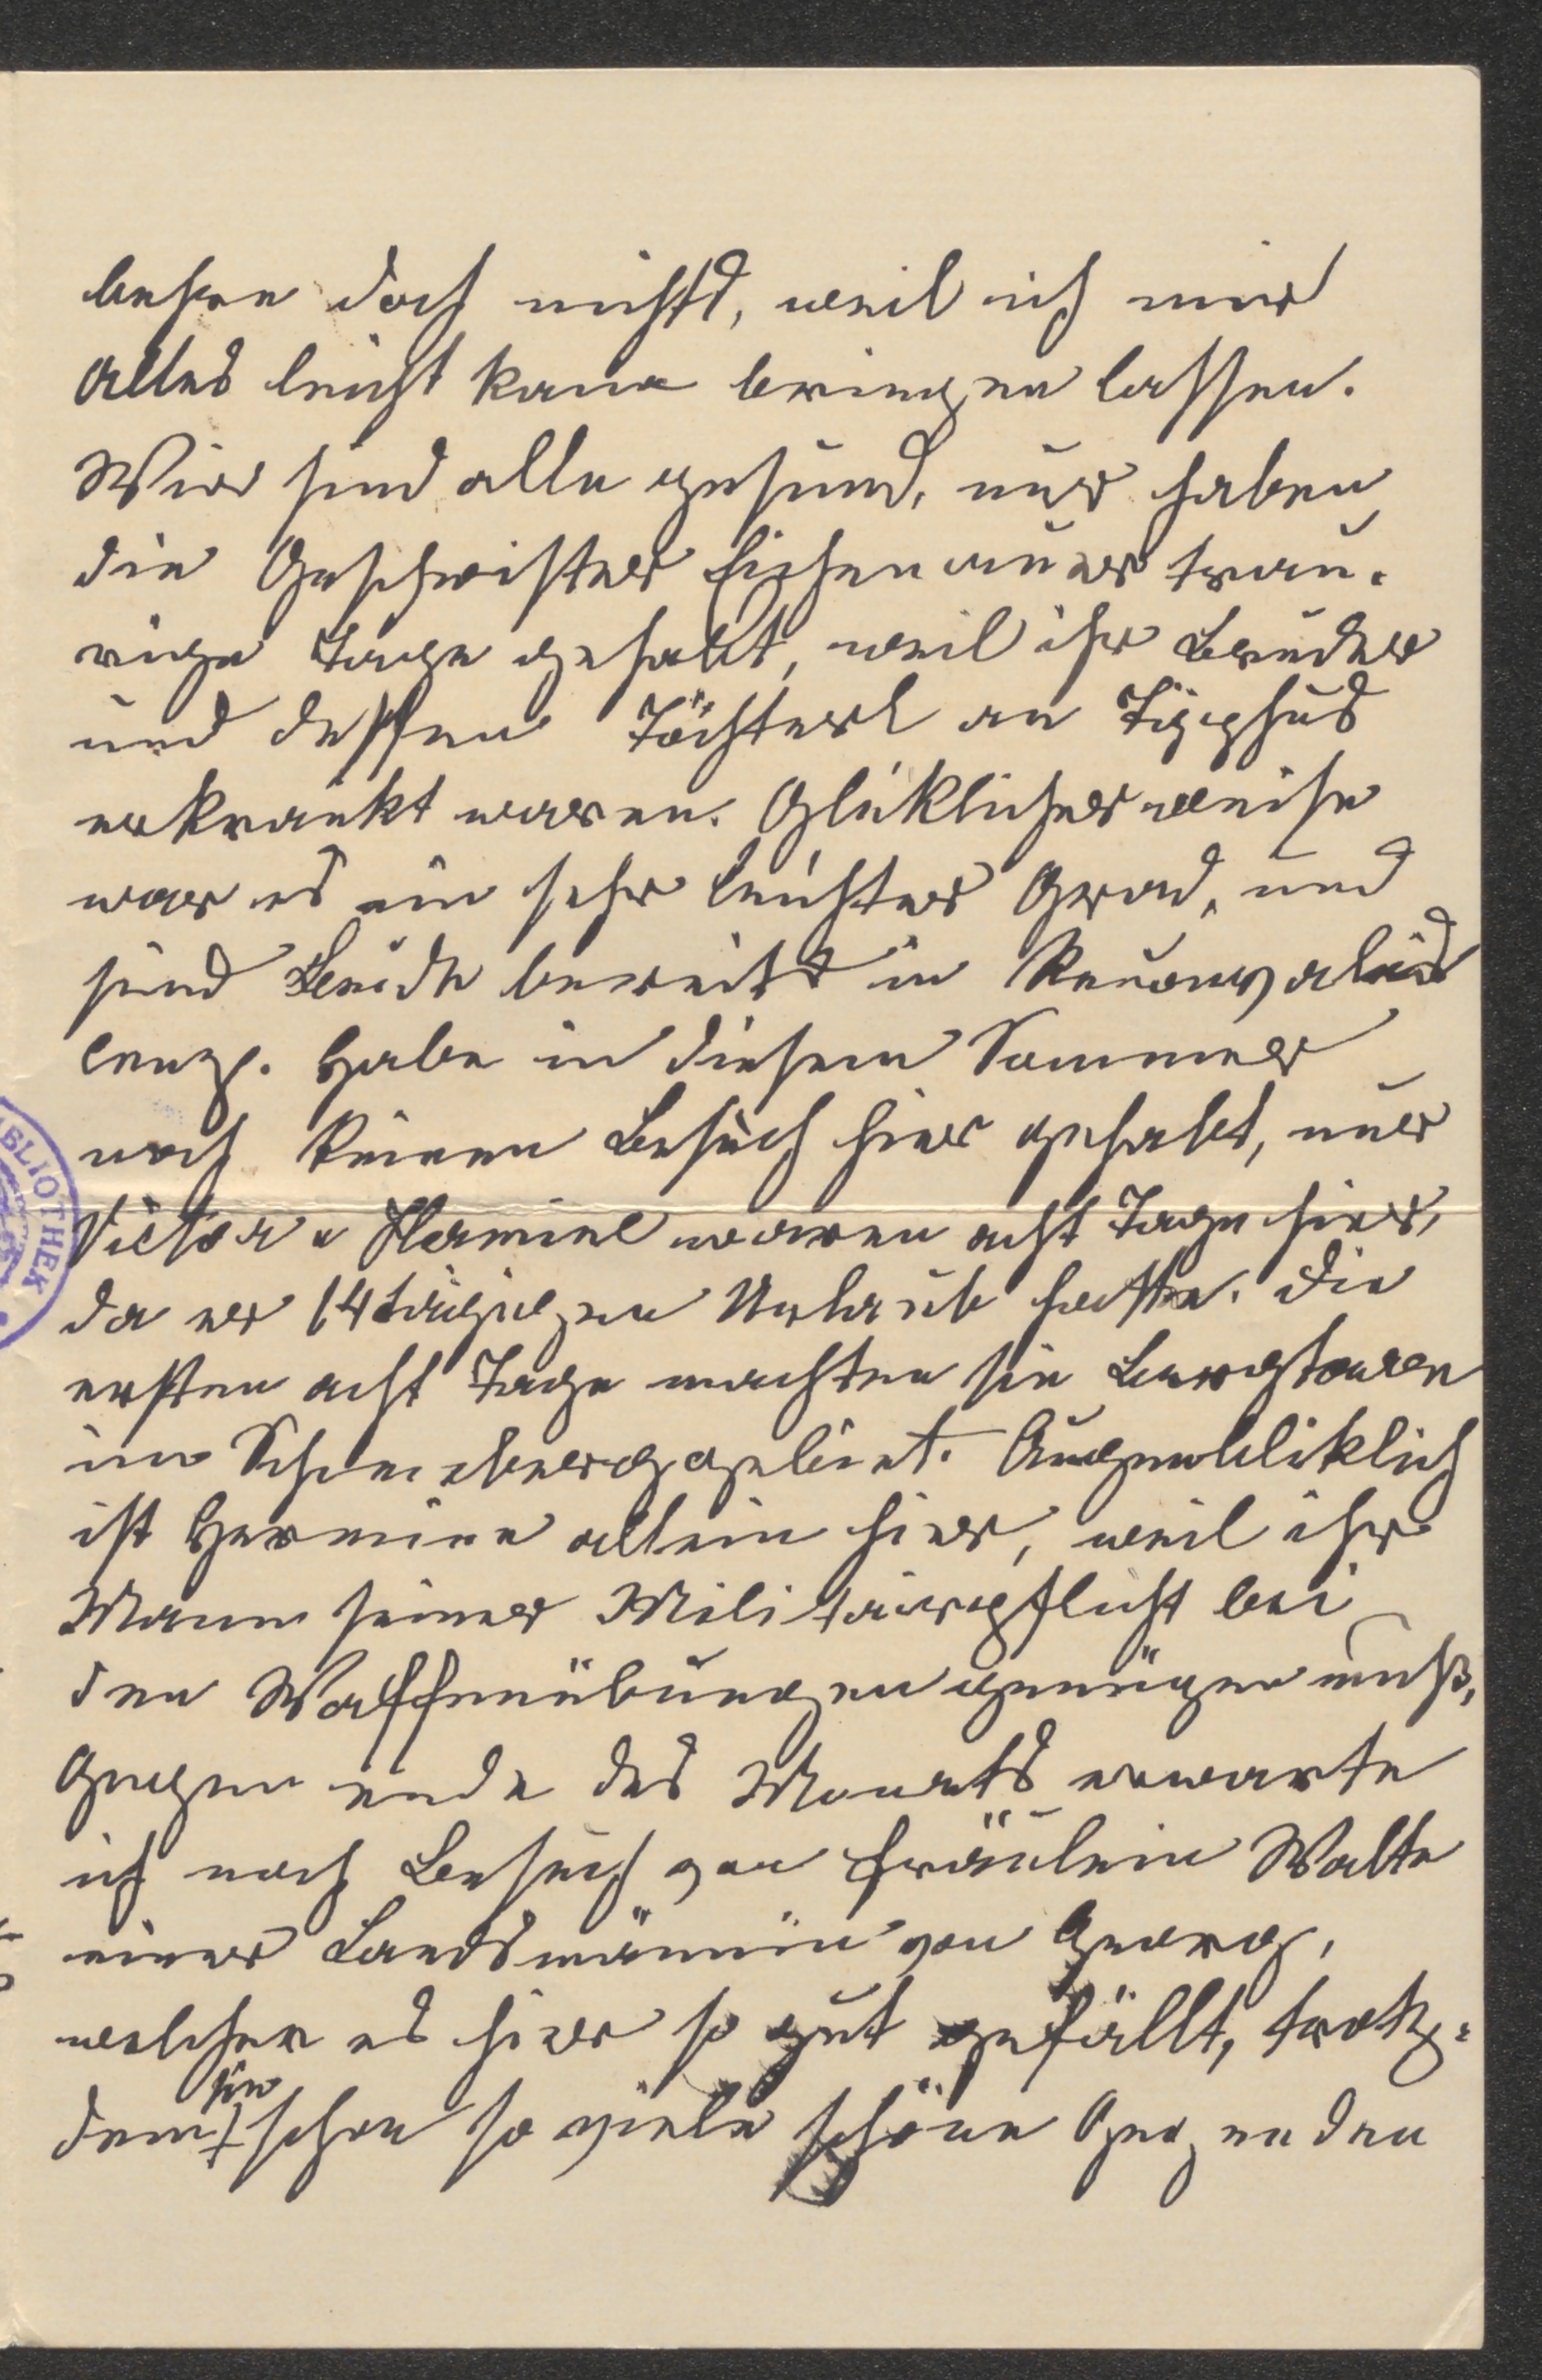 behre doch nichts, weil ich mir
alles leicht kann bringen lassen.
Wir sind alle gesund, nur haben
die Geschwister Eichenauer trau-
rige Tage gehabt, weil ihr Bruder
und dessen Töchterl an Typhus
erkrankt waren. Glüklicherweise
war es ein sehr leichter Grad, und
sind Beide bereits in Reconvales
lenz. Habe in diesem Sommer
noch keinen Besuch hier gehabt, nur
Victor u Hermine waren acht Tage hier,
da er 14tägigen Urlaub hatte. Die
ersten acht Tage machten sie Bergtouren
im Schneeberggebiet. Augenbliklich
ist Hermine allein hier, weil ihr
Mann seiner Militärpflicht bei
den Waffenübungen genügen muß,
Gegen ende des Monats erwarte
ich noch Besuch von Fräulein Walte
einer Landsmännin von Georg,
welcher es hier so gut gefällt, trotz-
dem sie schon so viele schöne Gegenden
BLIOTHEK